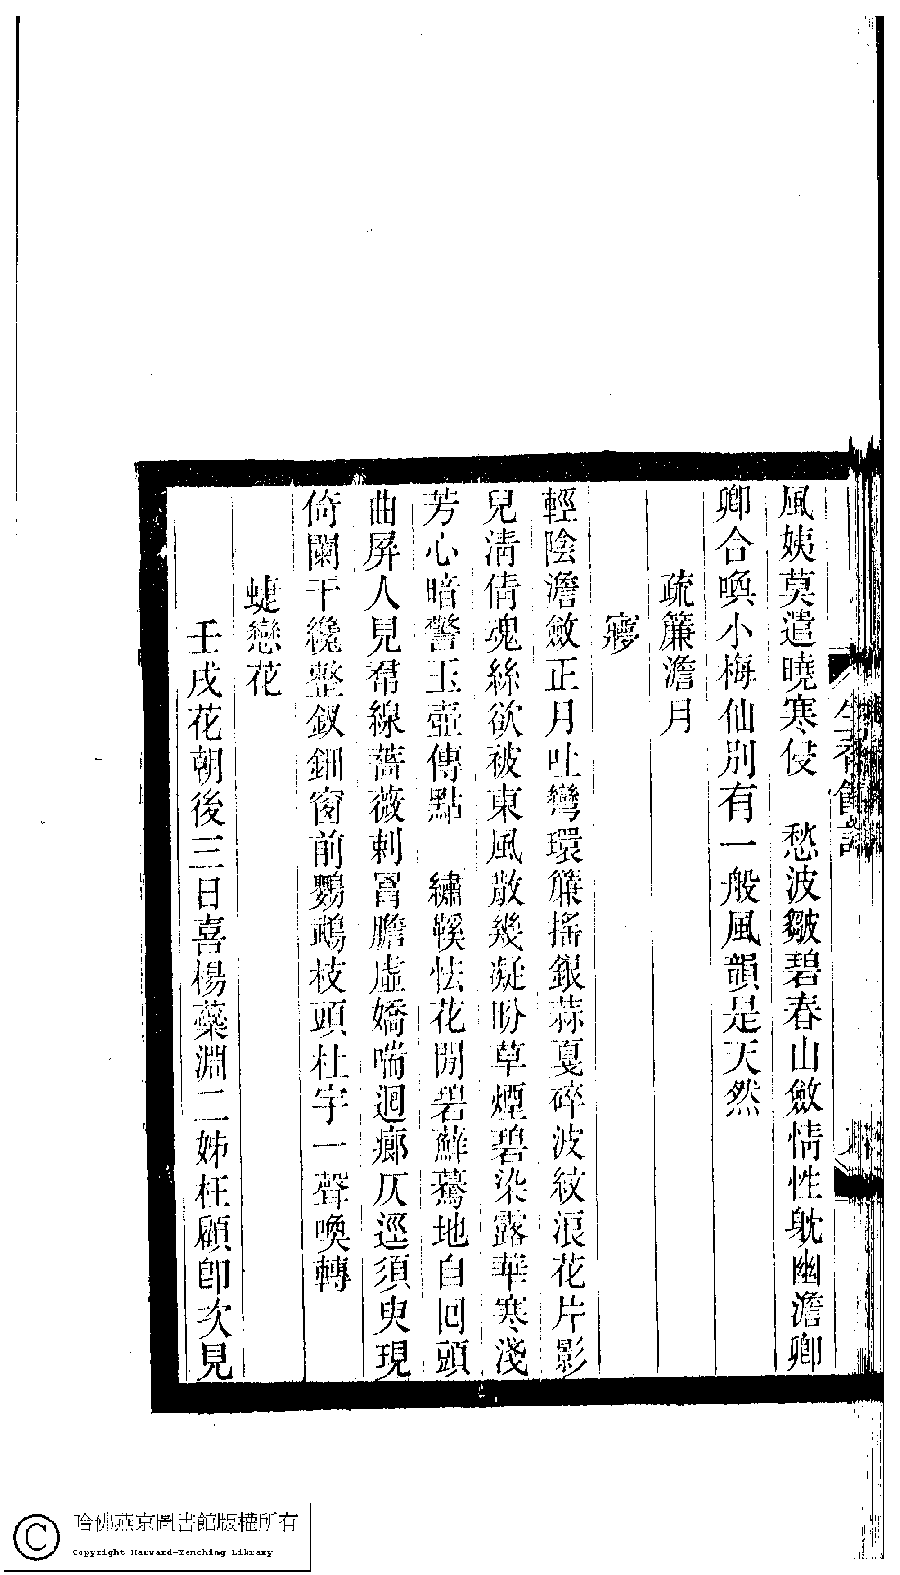 風姨莫遣曉寒侵　愁波皺碧春山斂情性躭幽澹卿
卿合喚小梅仙別有一般風韻是天然
疏簾澹月
寱
輕陰澹斂正月吐彎環簾搖銀蒜戛碎波紋浪花片影
兒淸倩魂絲欲被東風散幾凝盼草煙碧染露華寒淺
芳心暗警玉壺傳點　繡鞵怯花開碧蘚驀地自回頭
曲屏人見羣線薔薇刺罥膽虛嬌喘迴廊仄逕須臾現
倚闌干纔整釵鈿窗前鸚鵡枝頭杜宇一聲喚轉
蜨戀花
壬戌花朝後三日喜楊蘂淵二姊枉顧卽次見
哈佛燕京圖書館版權所有
Copyright Harvard-Yenching Library